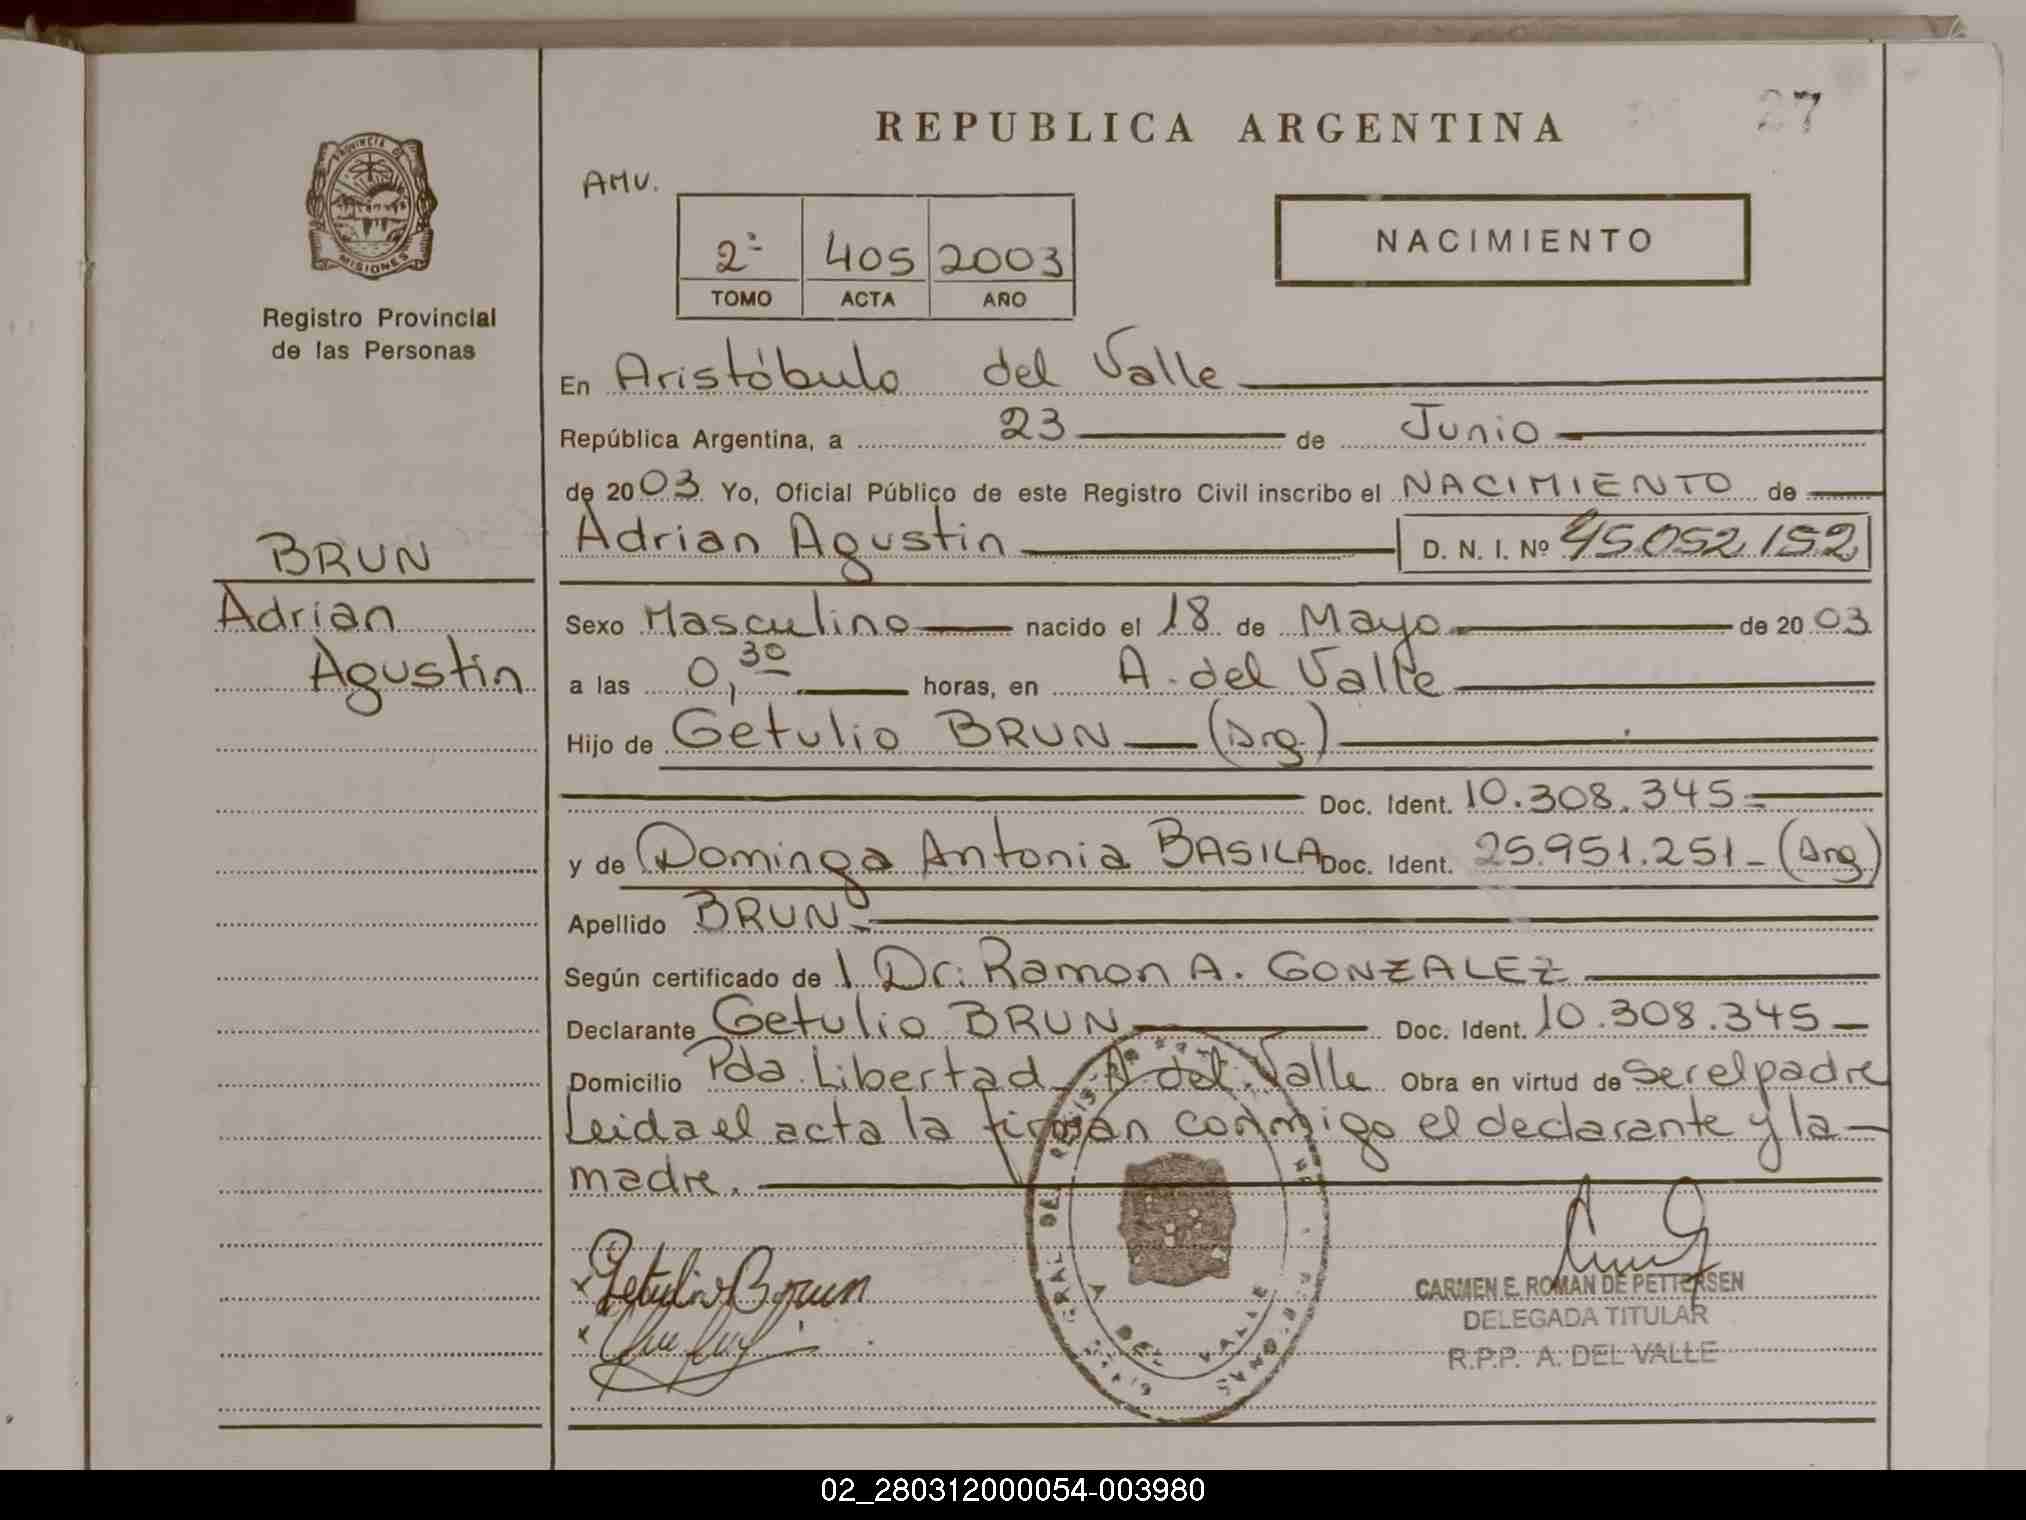 REPUBLICA ARGENTINA
27
AMV.
PROVINCIA DE
MISIONES
Registro Provincial
de las Personas
2ª 405 2003
TOMO ACTA AÑO
NACIMIENTO
En Aristóbulo del Valle
República Argentina, a 23 de Junio
de 2003 Yo, Oficial Público de este Registro Civil inscribo el NACIMIENTO de
BRUN
Adrian
Agustin
Adrian Agustin D. N. I. Nº 45.052.152
Sexo Masculino nacido el 18 de Mayo de 2003
a las 0,30 horas, en A. del Valle
Hijo de Getulio BRUN (Arg.)
Doc. Ident. 10.308.345
y de Dominga Antonia BASILA Doc. Ident. 25.951.251 (Arg)
Apellido BRUN
Según certificado de l Dr. Ramon A. GONZALEZ
Declarante Getulio BRUN Doc. Ident. 10.308.345
Domicilio Pda. Libertad A. del Valle Obra en virtud de ser el padre
Leida el acta la firman conmigo el declarante y la
madre.
x Getulio Brun
x
A DEL VALLE
CARMEN E. ROMAN DE PETTERSEN
DELEGADA TITULAR
R.P.P. A. DEL VALLE
02_280312000054-003980